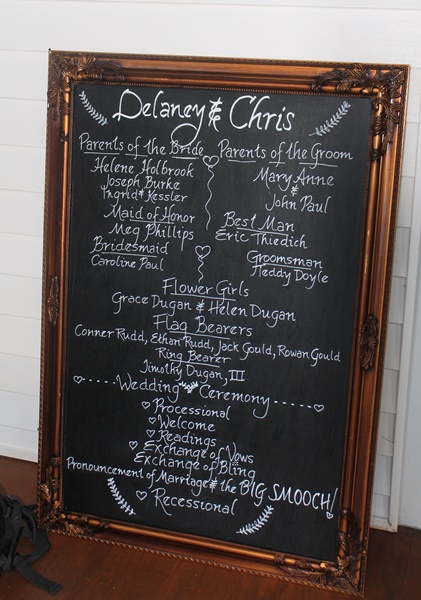 Delaney & Chris
Parents of the Bride Parents of the Groom
Helene Holbrook
Joseph Burke
Ingrid Kessler
Mary Anne
&
John Paul
Maid of Honor
Meg Phillips
Best Man
Eric Thiedich
Bridesmaid
Caroline Paul
Groomsman
Teddy Doyle
Flower Girls
Grace Dugan & Helen Dugan
Flag Bearers
Conner Rudd, Ethan Rudd, Jack Gould, Rowan Gould
Ring Bearer
Jimothy Dugan, III
Wedding Ceremony
Processional
Welcome
Readings
Exchange of Vows
Exchange of Bling
Pronouncement of Marriage & the BIG SMOOCH!
Recessional